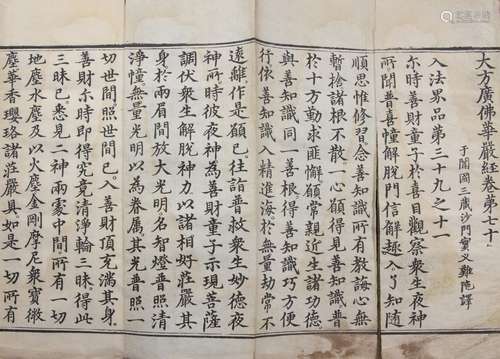 大方廣佛華嚴經卷第七十
于闐國三藏沙門實叉難陀譯
入法界品第三十九之十一
尒時善財童子於喜目觀察衆生夜神
所聞普喜幢解脫門信解趣入了知隨
順思惟修習念善知識所有教誨心無
暫捨諸根不散一心願得見善知識普
於十方勤求匪懈願常親近生諸功德
與善知識同一善根得善知識巧方便
行依善知識入精進海於無量劫常不
遠離作是願已往詣普救衆生妙德夜
神所時彼夜神爲善財童子示現菩薩
調伏衆生解脫神力以諸相好莊嚴其
身於兩眉間放大光明名智燈普照清
淨幢無量光明以爲眷屬其光普照一
切世間照世間已入善財頂充滿其身
善財尒時即得究竟清淨輪三昧得此
三昧已悉見二神兩處中間所有一切
地塵水塵及以火塵金剛摩尼衆寶微
塵華香瓔珞諸莊嚴具如是一切所有